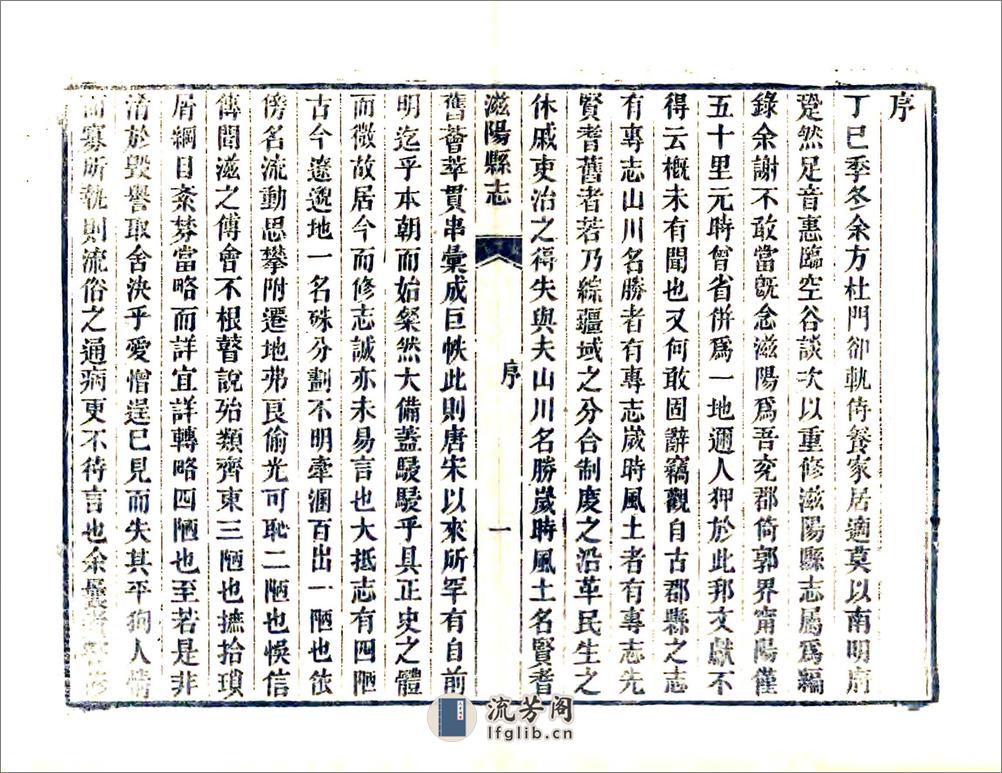 序
丁巳季冬余方杜門卻軌侍養家居適莫以南明府
跫然足音惠臨空谷談次以重修滋陽縣志屬爲編
錄余謝不敢當旣念滋陽爲吾兗郡倚郭界甯陽僅
五十里元時曾省併爲一地邇人狎於此邦文獻不
得云槪未有聞也又何敢固辭竊觀自古郡縣之志
有專志山川名勝者有專志歲時風土者有專志先
賢耆舊者若乃綜疆域之分合制度之沿革民生之
休戚吏治之得失與夫山川名勝歲時風土名賢耆
滋陽縣志 序 一
舊薈萃貫串彙成巨帙此則唐宋以來所罕有自前
明迄乎本朝而始粲然大備蓋駸駸乎具正史之體
而微故居今而修志誠亦未易言也大抵志有四陋
古今遼邈地一名殊分劃不明牽溷百出一陋也依
傍名流動思攀附遷地弗良偷光可恥二陋也悞信
傳聞滋之傅會不根瞽說殆類齊東三陋也摭拾瑣
屑綱目紊棼當略而詳宜詳轉略四陋也至若是非
淆於毀譽取舍決乎愛憎逞已見而失其平狥人情
而寡所執則流俗之通病更不待言也余曩者修
流芳阁
lfglib.cn